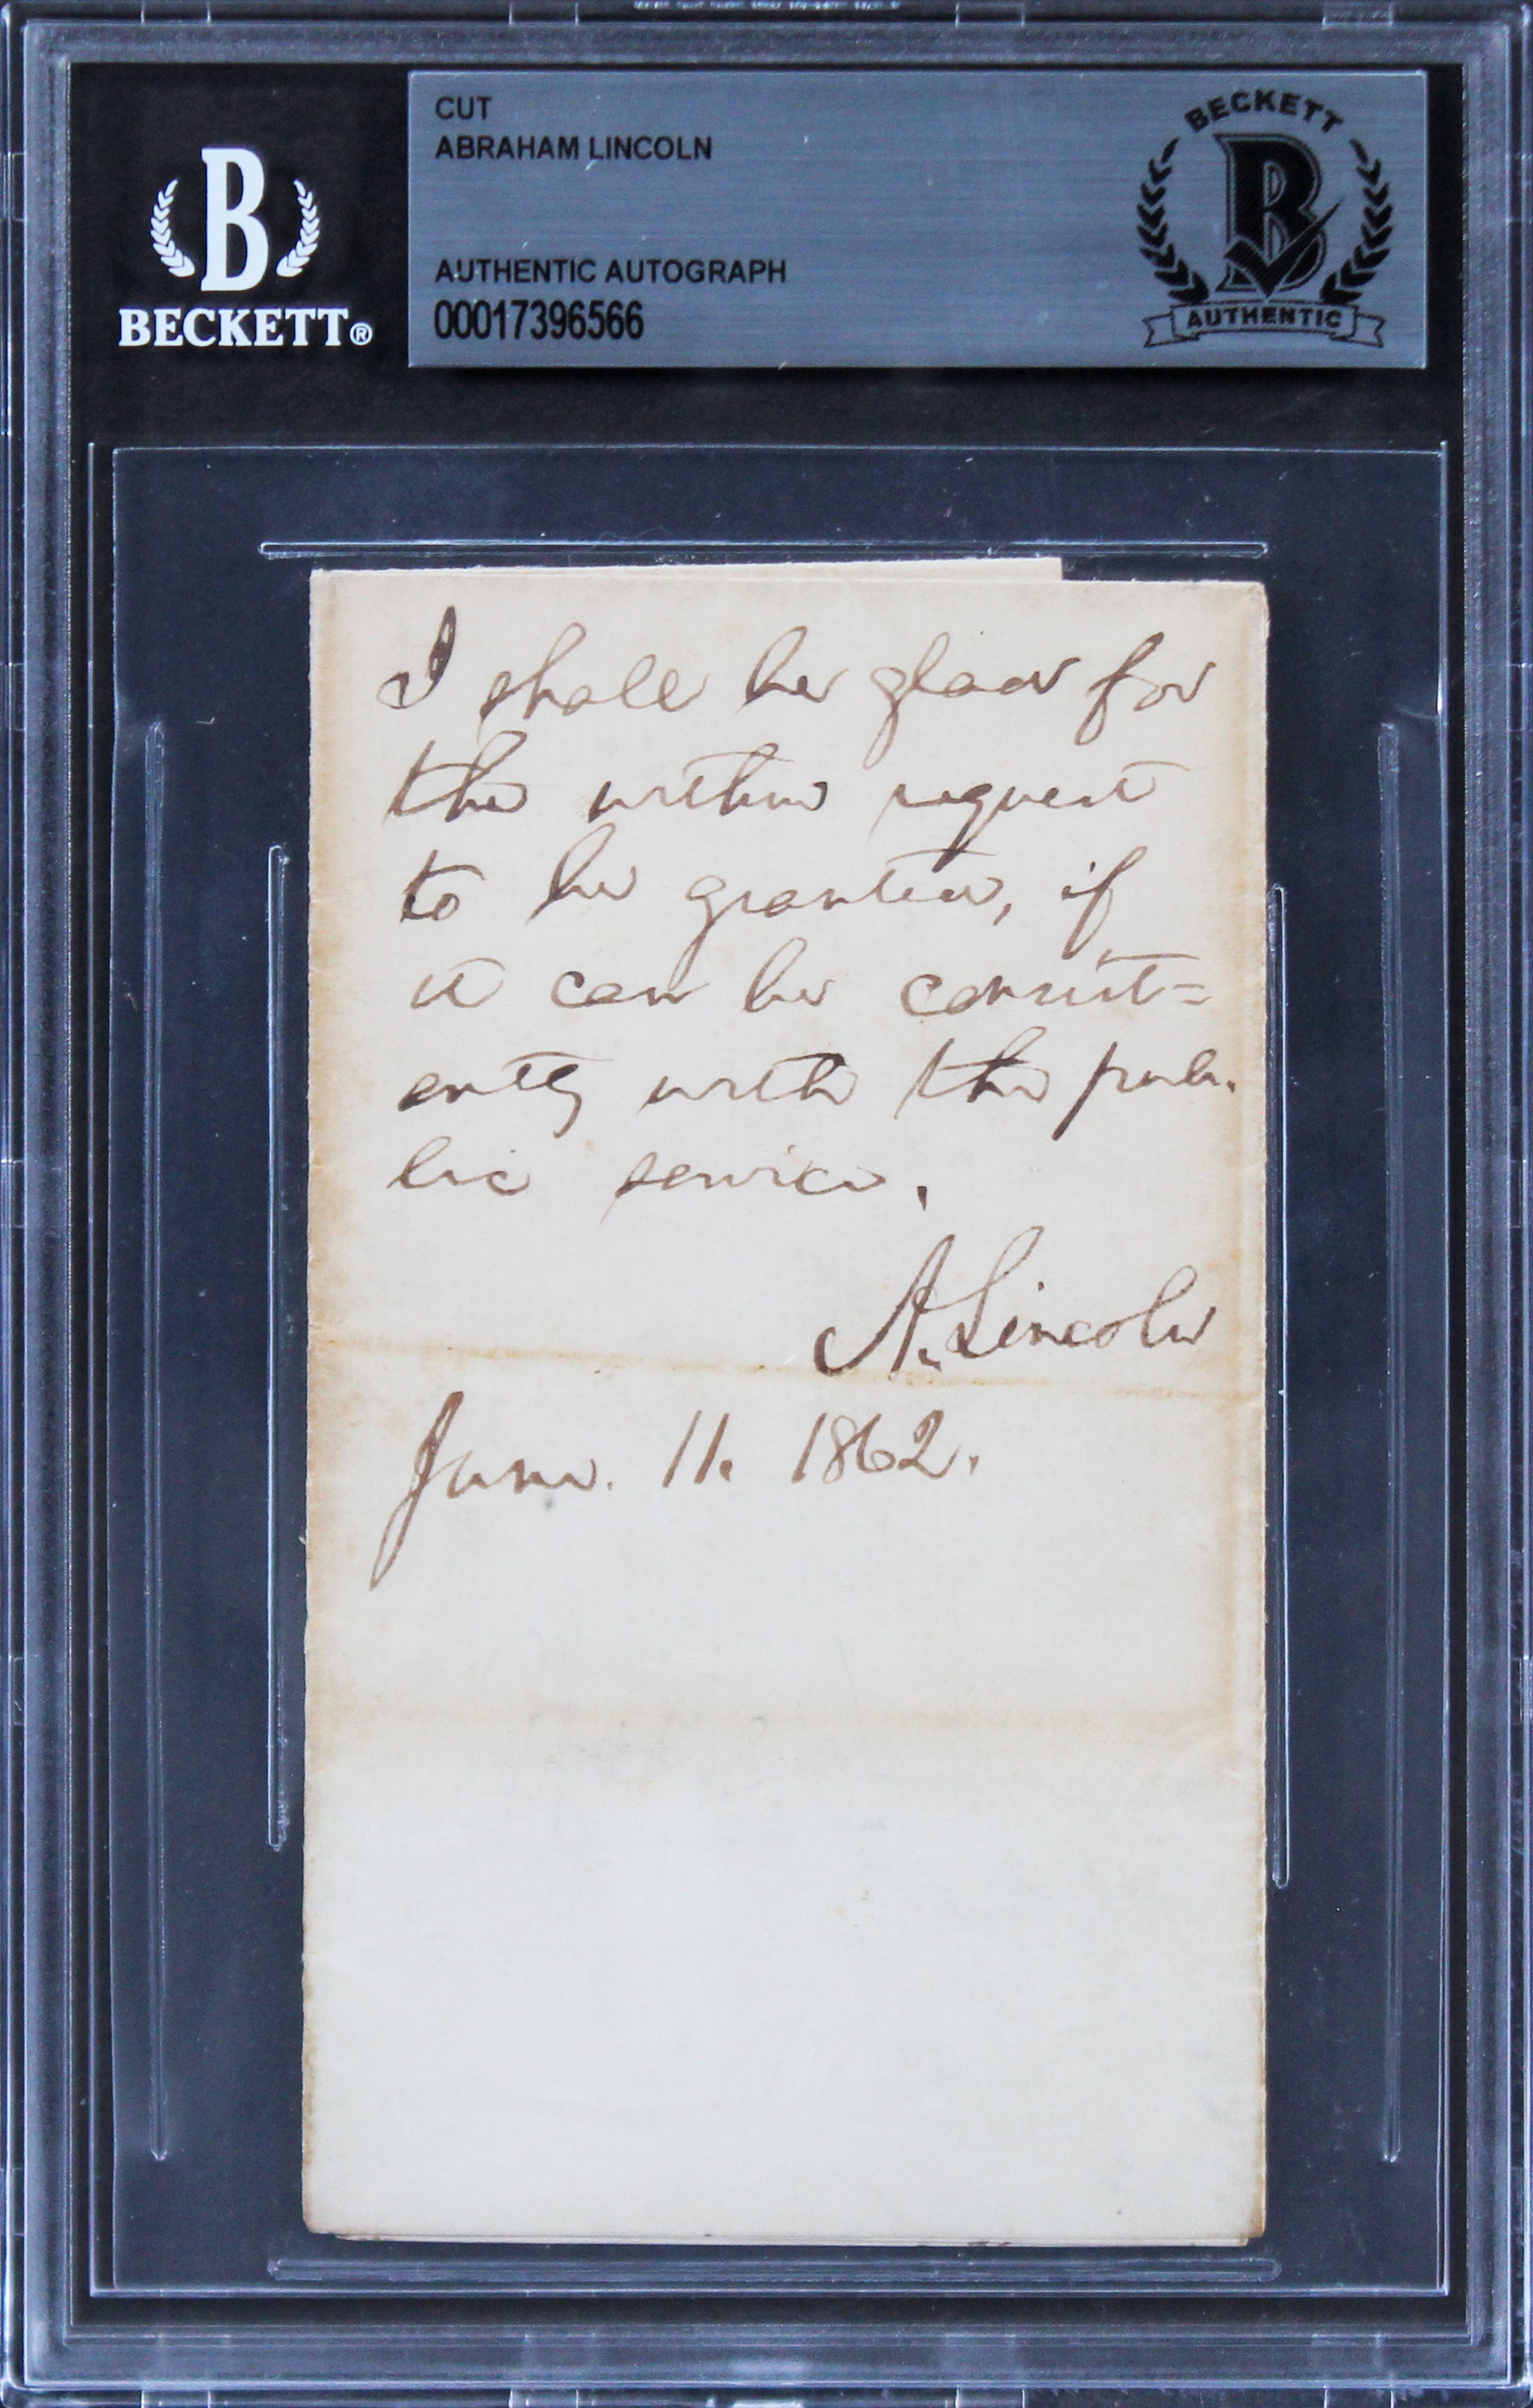 CUT
ABRAHAM LINCOLN
AUTHENTIC AUTOGRAPH
00017396566
B
BECKETT®
BECKETT
B
AUTHENTIC
I shall be glad for
the within request
to be granted, if
it can be consist=
ently with the pub-
lic service.
A. Lincoln
June. 11. 1862.